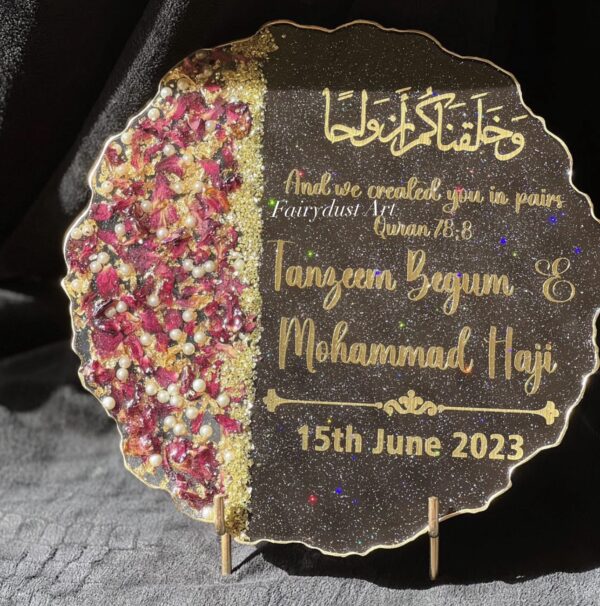 وَخَلَقْنَاكُمْ أَزْوَاجًا
And we created you in pairs
Fairydust Art
Quran 78:8
Tanzeem Begum &
Mohammad Haji
15th June 2023